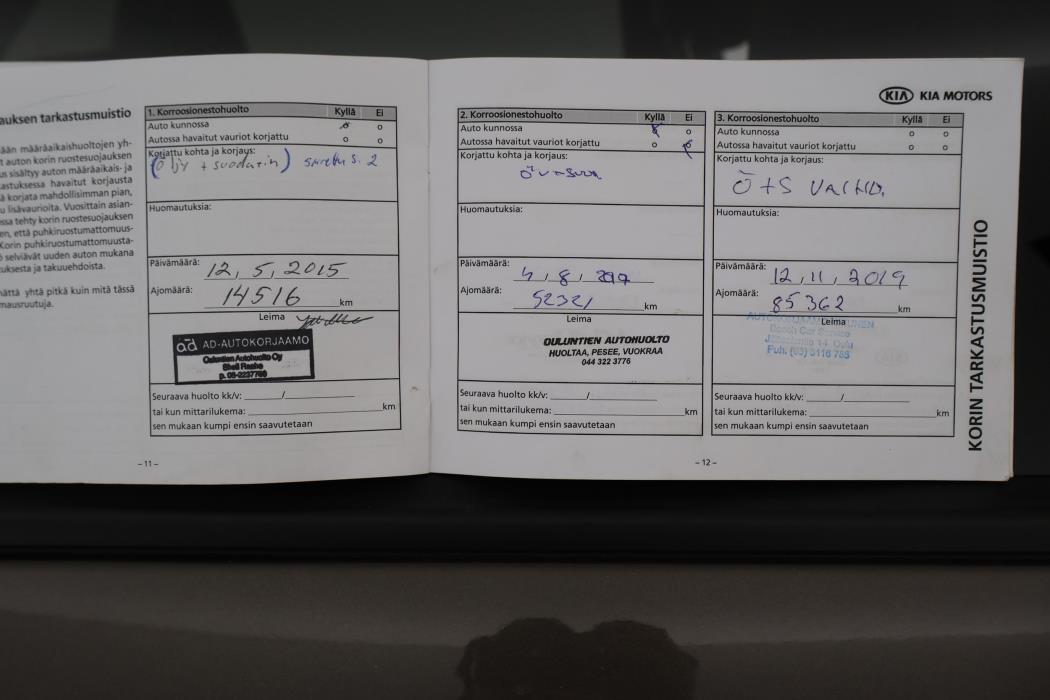 auksen tarkastusmuistio
ään määräaikaishuoltojen yh-
t auton korin ruostesuojauksen
us sisältyy auton määräaikais- ja
astuksessa havaitut korjausta
ä korjata mahdollisimman pian,
u lisävaurioita. Vuosittain asian-
ssa tehty korin ruostesuojauksen
en, että puhkiruostumattomuus-
Korin puhkiruostumattomuusta-
ö selviävät uuden auton mukana
uksesta ja takuuehdoista.
nättä yhtä pitkä kuin mitä tässä
mausruutuja.
1. Korroosionestohuolto Kyllä Ei
Auto kunnossa
Autossa havaitut vauriot korjattu
Korjattu kohta ja korjaus:
(Öljy + suodatin) s. 2
Huomautuksia:
Päivämäärä: 12, 5, 2015
Ajomäärä: 14516 km
Leima
ad AD-AUTOKORJAAMO
Ouluntien Autohuolto Oy
Shell Raahe
Seuraava huolto kk/v: /
tai kun mittarilukema: km
sen mukaan kumpi ensin saavutetaan
– 11 –
KIA KIA MOTORS
2. Korroosionestohuolto Kyllä Ei
Auto kunnossa
Autossa havaitut vauriot korjattu
Korjattu kohta ja korjaus:
Huomautuksia:
Päivämäärä: 4, 8,
Ajomäärä: 52321 km
Leima
OULUNTIEN AUTOHUOLTO
HUOLTAA, PESEE, VUOKRAA
044 322 3776
Seuraava huolto kk/v: /
tai kun mittarilukema: km
sen mukaan kumpi ensin saavutetaan
– 12 –
3. Korroosionestohuolto Kyllä Ei
Auto kunnossa
Autossa havaitut vauriot korjattu
Korjattu kohta ja korjaus:
Ö+S VAIHD.
Huomautuksia:
Päivämäärä: 12, 11, 2019
Ajomäärä: 85362 km
Leima
Bosch Car Service
14, Oulu
Puh. (08) 3116 785
Seuraava huolto kk/v: /
tai kun mittarilukema: km
sen mukaan kumpi ensin saavutetaan
KORIN TARKASTUSMUISTIO